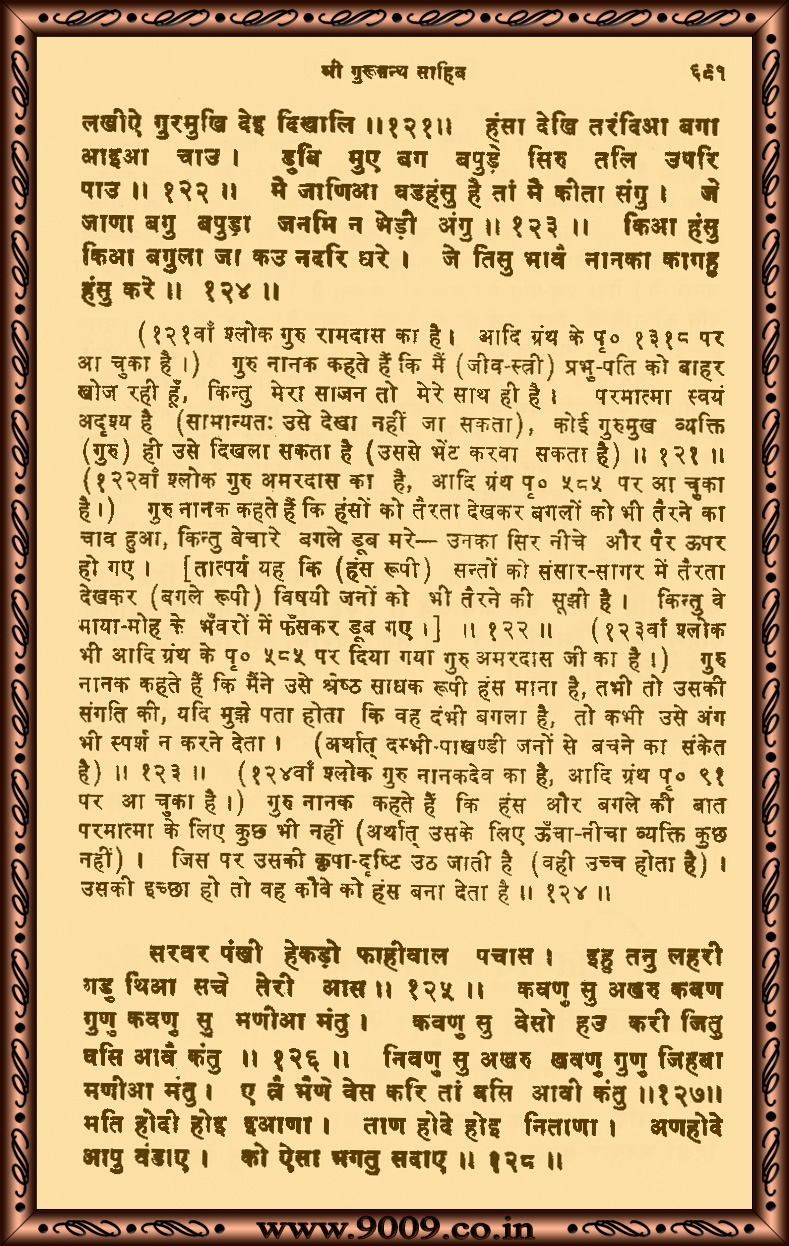 श्री गुरूग्रन्थ साहिब ६९१
लखीऐ गुरमुखि देइ दिखालि ॥१२१॥ हंसा देखि तरंदिआ बगा
आइआ चाउ । डुबि मुए बग बपुड़े सिरु तलि उपरि
पाउ ॥ १२२ ॥ मै जाणिआ वडहंसु है तां मै कीता संगु । जे
जाणा बगु बपुड़ा जनमि न भेड़ी अंगु ॥ १२३ ॥ किआ हंसु
किआ बगुला जा कउ नदरि धरे । जे तिसु भावै नानका कागहु
हंसु करे ॥ १२४ ॥
(१२१वाँ श्लोक गुरु रामदास का है । आदि ग्रंथ के पृ० १३१८ पर
आ चुका है ।) गुरु नानक कहते हैं कि मैं (जीव-स्त्री) प्रभु-पति को बाहर
खोज रही हूँ, किन्तु मेरा साजन तो मेरे साथ ही है । परमात्मा स्वयं
अदृश्य है (सामान्यतः उसे देखा नहीं जा सकता), कोई गुरुमुख व्यक्ति
(गुरु) ही उसे दिखला सकता है (उससे भेंट करवा सकता है) ॥ १२१ ॥
(१२२वाँ श्लोक गुरु अमरदास का है, आदि ग्रंथ पृ० ५८५ पर आ चुका
है ।) गुरु नानक कहते हैं कि हंसों को तैरता देखकर बगलों को भी तैरने का
चाव हुआ, किन्तु बेचारे बगले डूब मरे— उनका सिर नीचे और पैर ऊपर
हो गए । [तात्पर्य यह कि (हंस रूपी) सन्तों को संसार-सागर में तैरता
देखकर (बगले रूपी) विषयी जनों को भी तैरने की सूझी है । किन्तु वे
माया-मोह के भँवरों में फँसकर डूब गए ।] ॥ १२२ ॥ (१२३वाँ श्लोक
भी आदि ग्रंथ के पृ० ५८५ पर दिया गया गुरु अमरदास जी का है ।) गुरु
नानक कहते हैं कि मैंने उसे श्रेष्ठ साधक रूपी हंस माना है, तभी तो उसकी
संगति की, यदि मुझे पता होता कि वह दंभी बगला है, तो कभी उसे अंग
भी स्पर्श न करने देता । (अर्थात् दम्भी-पाखण्डी जनों से बचने का संकेत
है) ॥ १२३ ॥ (१२४वाँ श्लोक गुरु नानकदेव का है, आदि ग्रंथ पृ० ९१
पर आ चुका है ।) गुरु नानक कहते हैं कि हंस और बगले की बात
परमात्मा के लिए कुछ भी नहीं (अर्थात् उसके लिए ऊँचा-नीचा व्यक्ति कुछ
नहीं) । जिस पर उसकी कृपा-दृष्टि उठ जाती है (वही उच्च होता है) ।
उसकी इच्छा हो तो वह कौवे को हंस बना देता है ॥ १२४ ॥
सरवर पंखी हेकड़ो फाहीवाल पचास । इहु तनु लहरी
गडु थिआ सचे तेरी आस ॥ १२५ ॥ कवणु सु अखरु कवण
गुणु कवणु सु मणीआ मंतु । कवणु सु वेसो हउ करी जितु
वसि आवै कंतु ॥ १२६ ॥ निवणु सु अखरु खवणु गुणु जिहबा
मणीआ मंतु । ए त्रै भैणे वेस करि तां वसि आवी कंतु ॥१२७॥
मति होदी होइ इआणा । ताण होदे होइ निताणा । अणहोदे
आपु वंडाए । को ऐसा भगतु सदाए ॥ १२८ ॥
www.9009.co.in